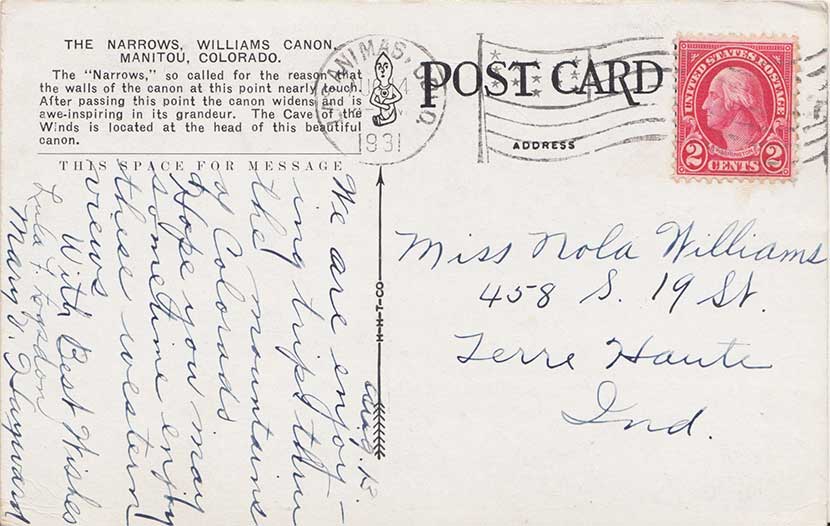 THE NARROWS, WILLIAMS CANON,
MANITOU, COLORADO.
The "Narrows," so called for the reason that
the walls of the canon at this point nearly touch.
After passing this point the canon widens and is
awe-inspiring in its grandeur. The Cave of the
Winds is located at the head of this beautiful
canon.
THIS SPACE FOR MESSAGE
ANIMAS, COLO.
1931
POST CARD
ADDRESS
UNITED STATES POSTAGE
WASHINGTON
2 CENTS 2
H-T-CO
Aug.
We are enjoy-
ing trip thru
the mountains
of Colorado
Hope you may
sometime enjoy
these western
views
With Best Wishes
Lula F.
Mary D. Hayward
Miss Nola Williams
458 S. 19 St.
Terre Haute
Ind.